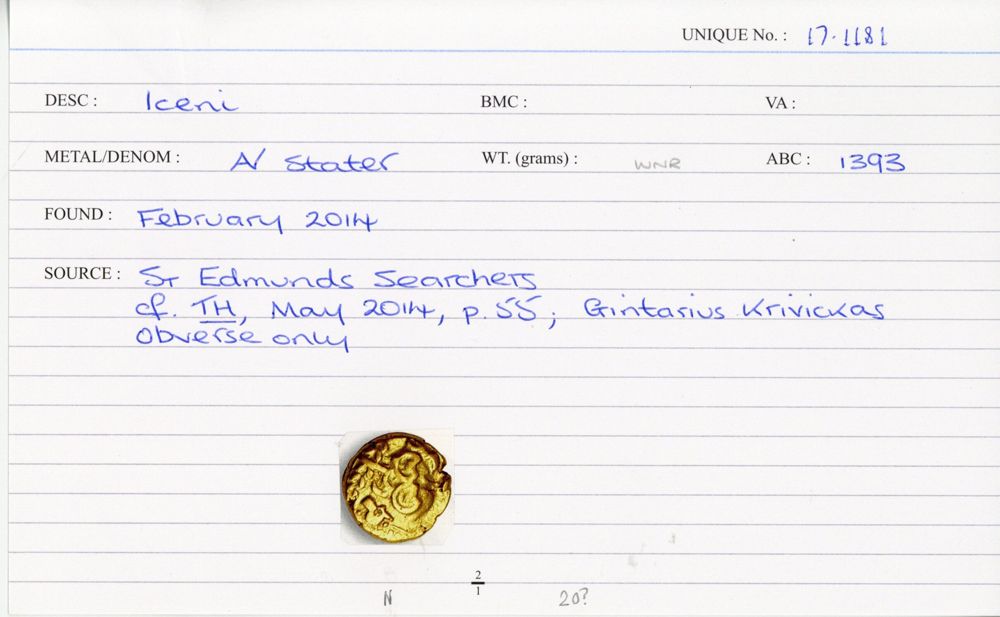 UNIQUE No. : 17.1181
DESC : Iceni BMC : VA :
METAL/DENOM : A/ Stater WT. (grams) : WNR ABC : 1393
FOUND : February 2014
SOURCE : St Edmunds Searchers
cf. TH, May 2014, p.55; Gintarius Krivickas
Obverse only
2
1
N 20?